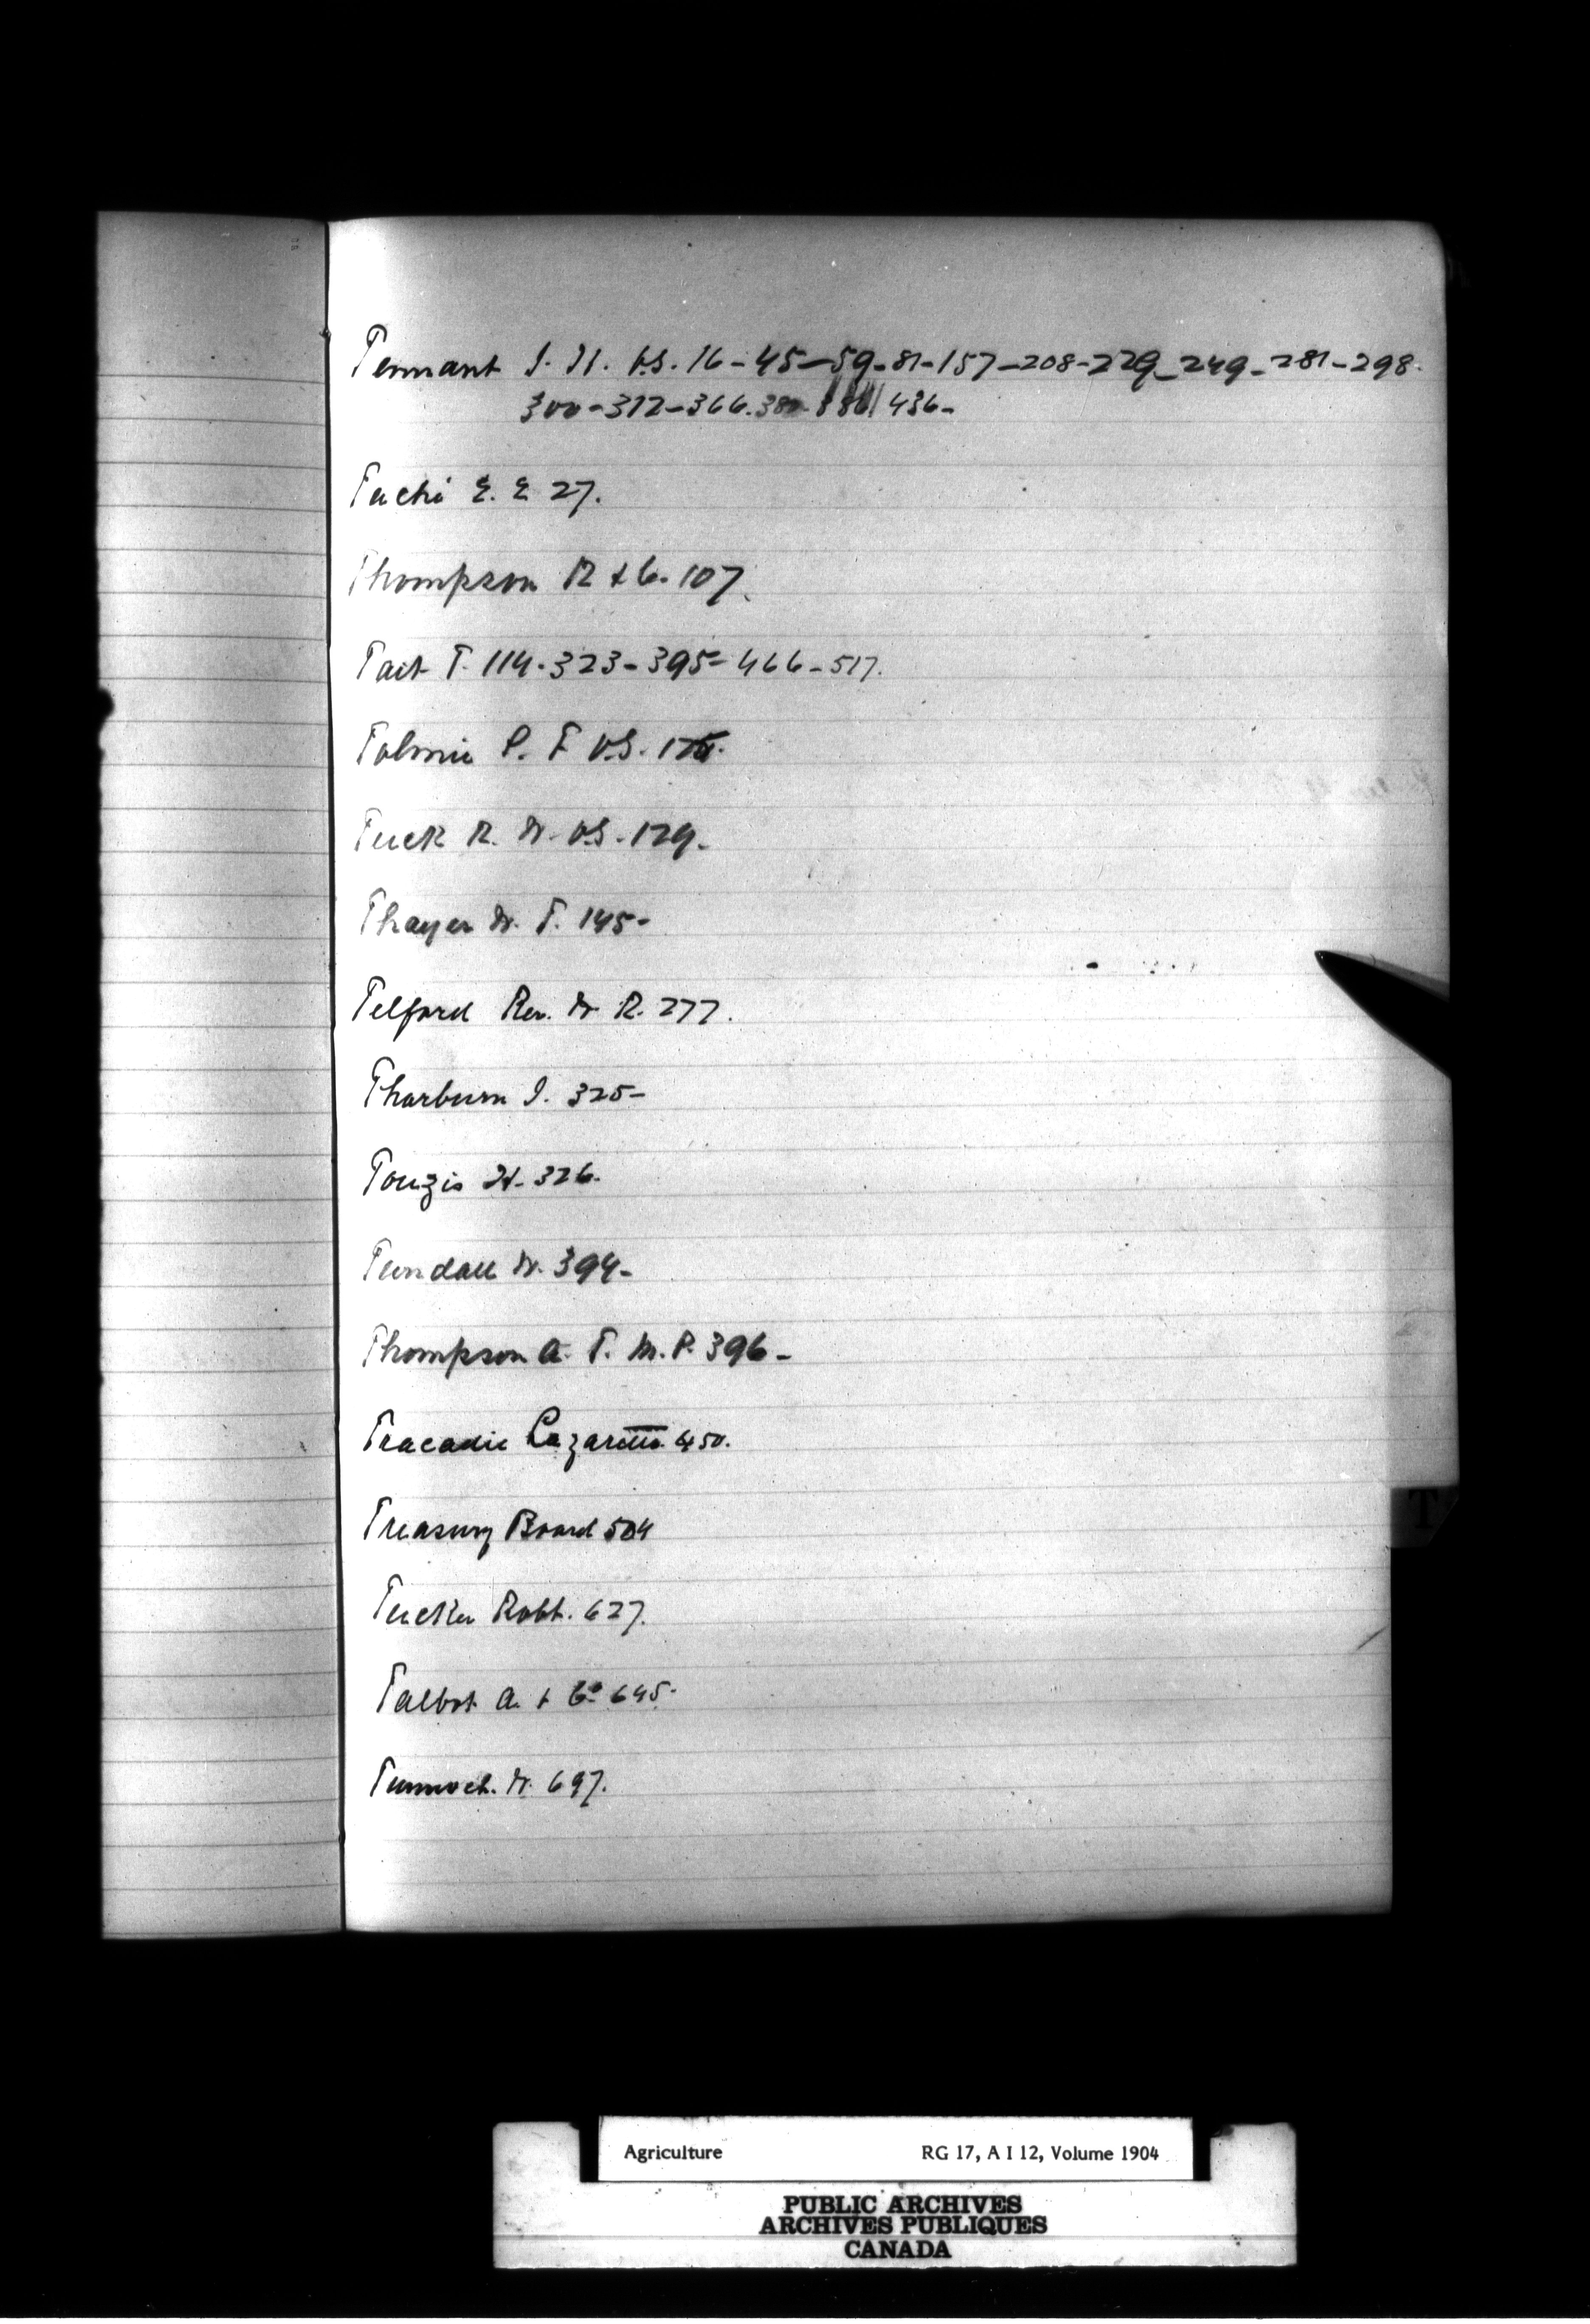 Tennant J. H. V.S. 16-45-59-81-157-208-229-249-281-298.
300-312-366. 386 436-
Taché E. E 27.
Thompson R & Co. 107.
Tait T. 114-323-395-466-517.
Tolmie S. F V.S.
Tuck R. W. V.S. 129-
Thayer W. T. 145-
Telford Rev. W R. 277.
Thorburn J. 325-
Touzis H. 326.
W. 394-
Thompson A. T. M.P. 396-
Tracadie Lazaretto. 450.
Treasury Board 504
Tucker Robt. 627.
Talbot A. & Co 645.
W. 697.
T
Agriculture RG 17, A I 12, Volume 1904
PUBLIC ARCHIVES
ARCHIVES PUBLIQUES
CANADA